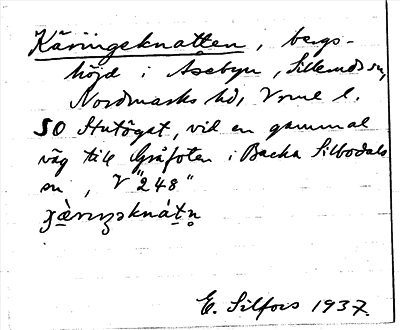 Käringeknatten, bergs-
höjd i Åsebyn, Sillerud sn,
Nordmarks hd, Vrml l.
SO Stutögat, vid en gammal
väg till Gråfoten i Backa Silbodals
sn, V "248"
E. Silfors 1937.